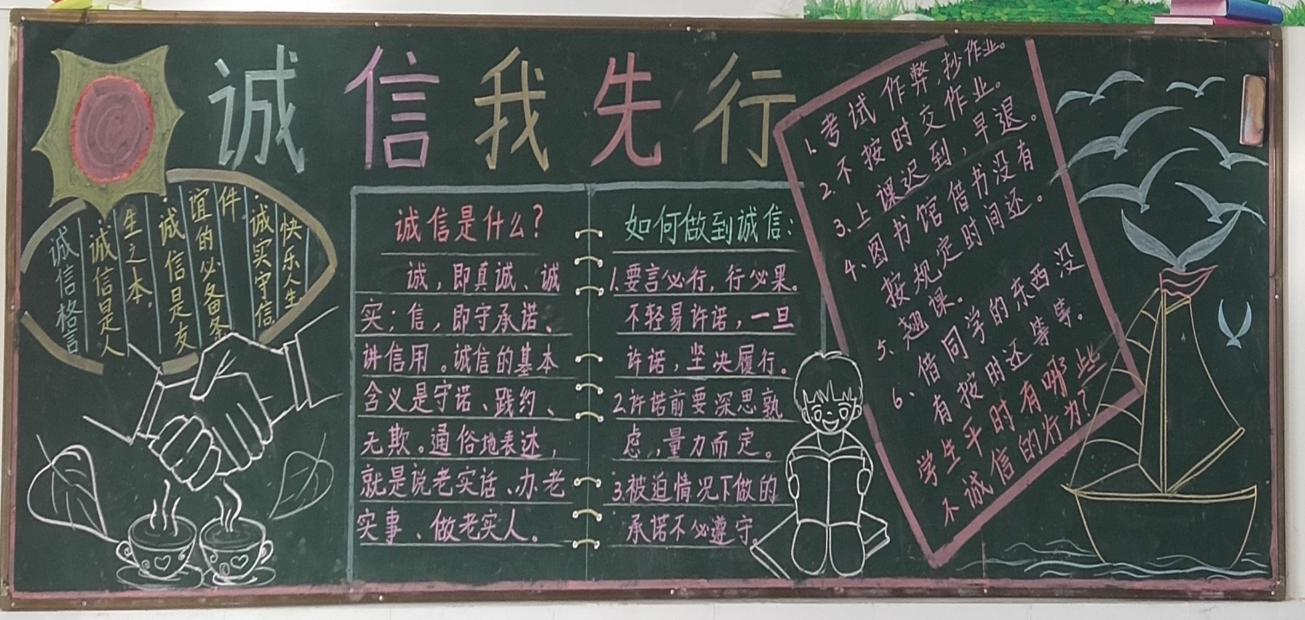 诚信我先行
诚信格言
·诚信是人
生之本，
·诚信是友
谊的必备条
件
·诚实守信
快乐人生
诚信是什么？
诚，即真诚、诚
实；信，即守承诺、
讲信用。诚信的基本
含义是守诺、践约、
无欺。通俗地表达，
就是说老实话、办老
实事、做老实人。
如何做到诚信：
1.要言必行，行必果。
不轻易许诺，一旦
许诺，坚决履行。
2.许诺前要深思熟
虑，量力而定。
3.被迫情况下做的
承诺不必遵守。
1.考试作弊，抄作业。
2.不按时交作业。
3.上课迟到，早退。
4.图书馆借书没有
按规定时间还。
5.翘课。
6.借同学的东西没
有按时还等等。
学生平时有哪些
不诚信的行为？